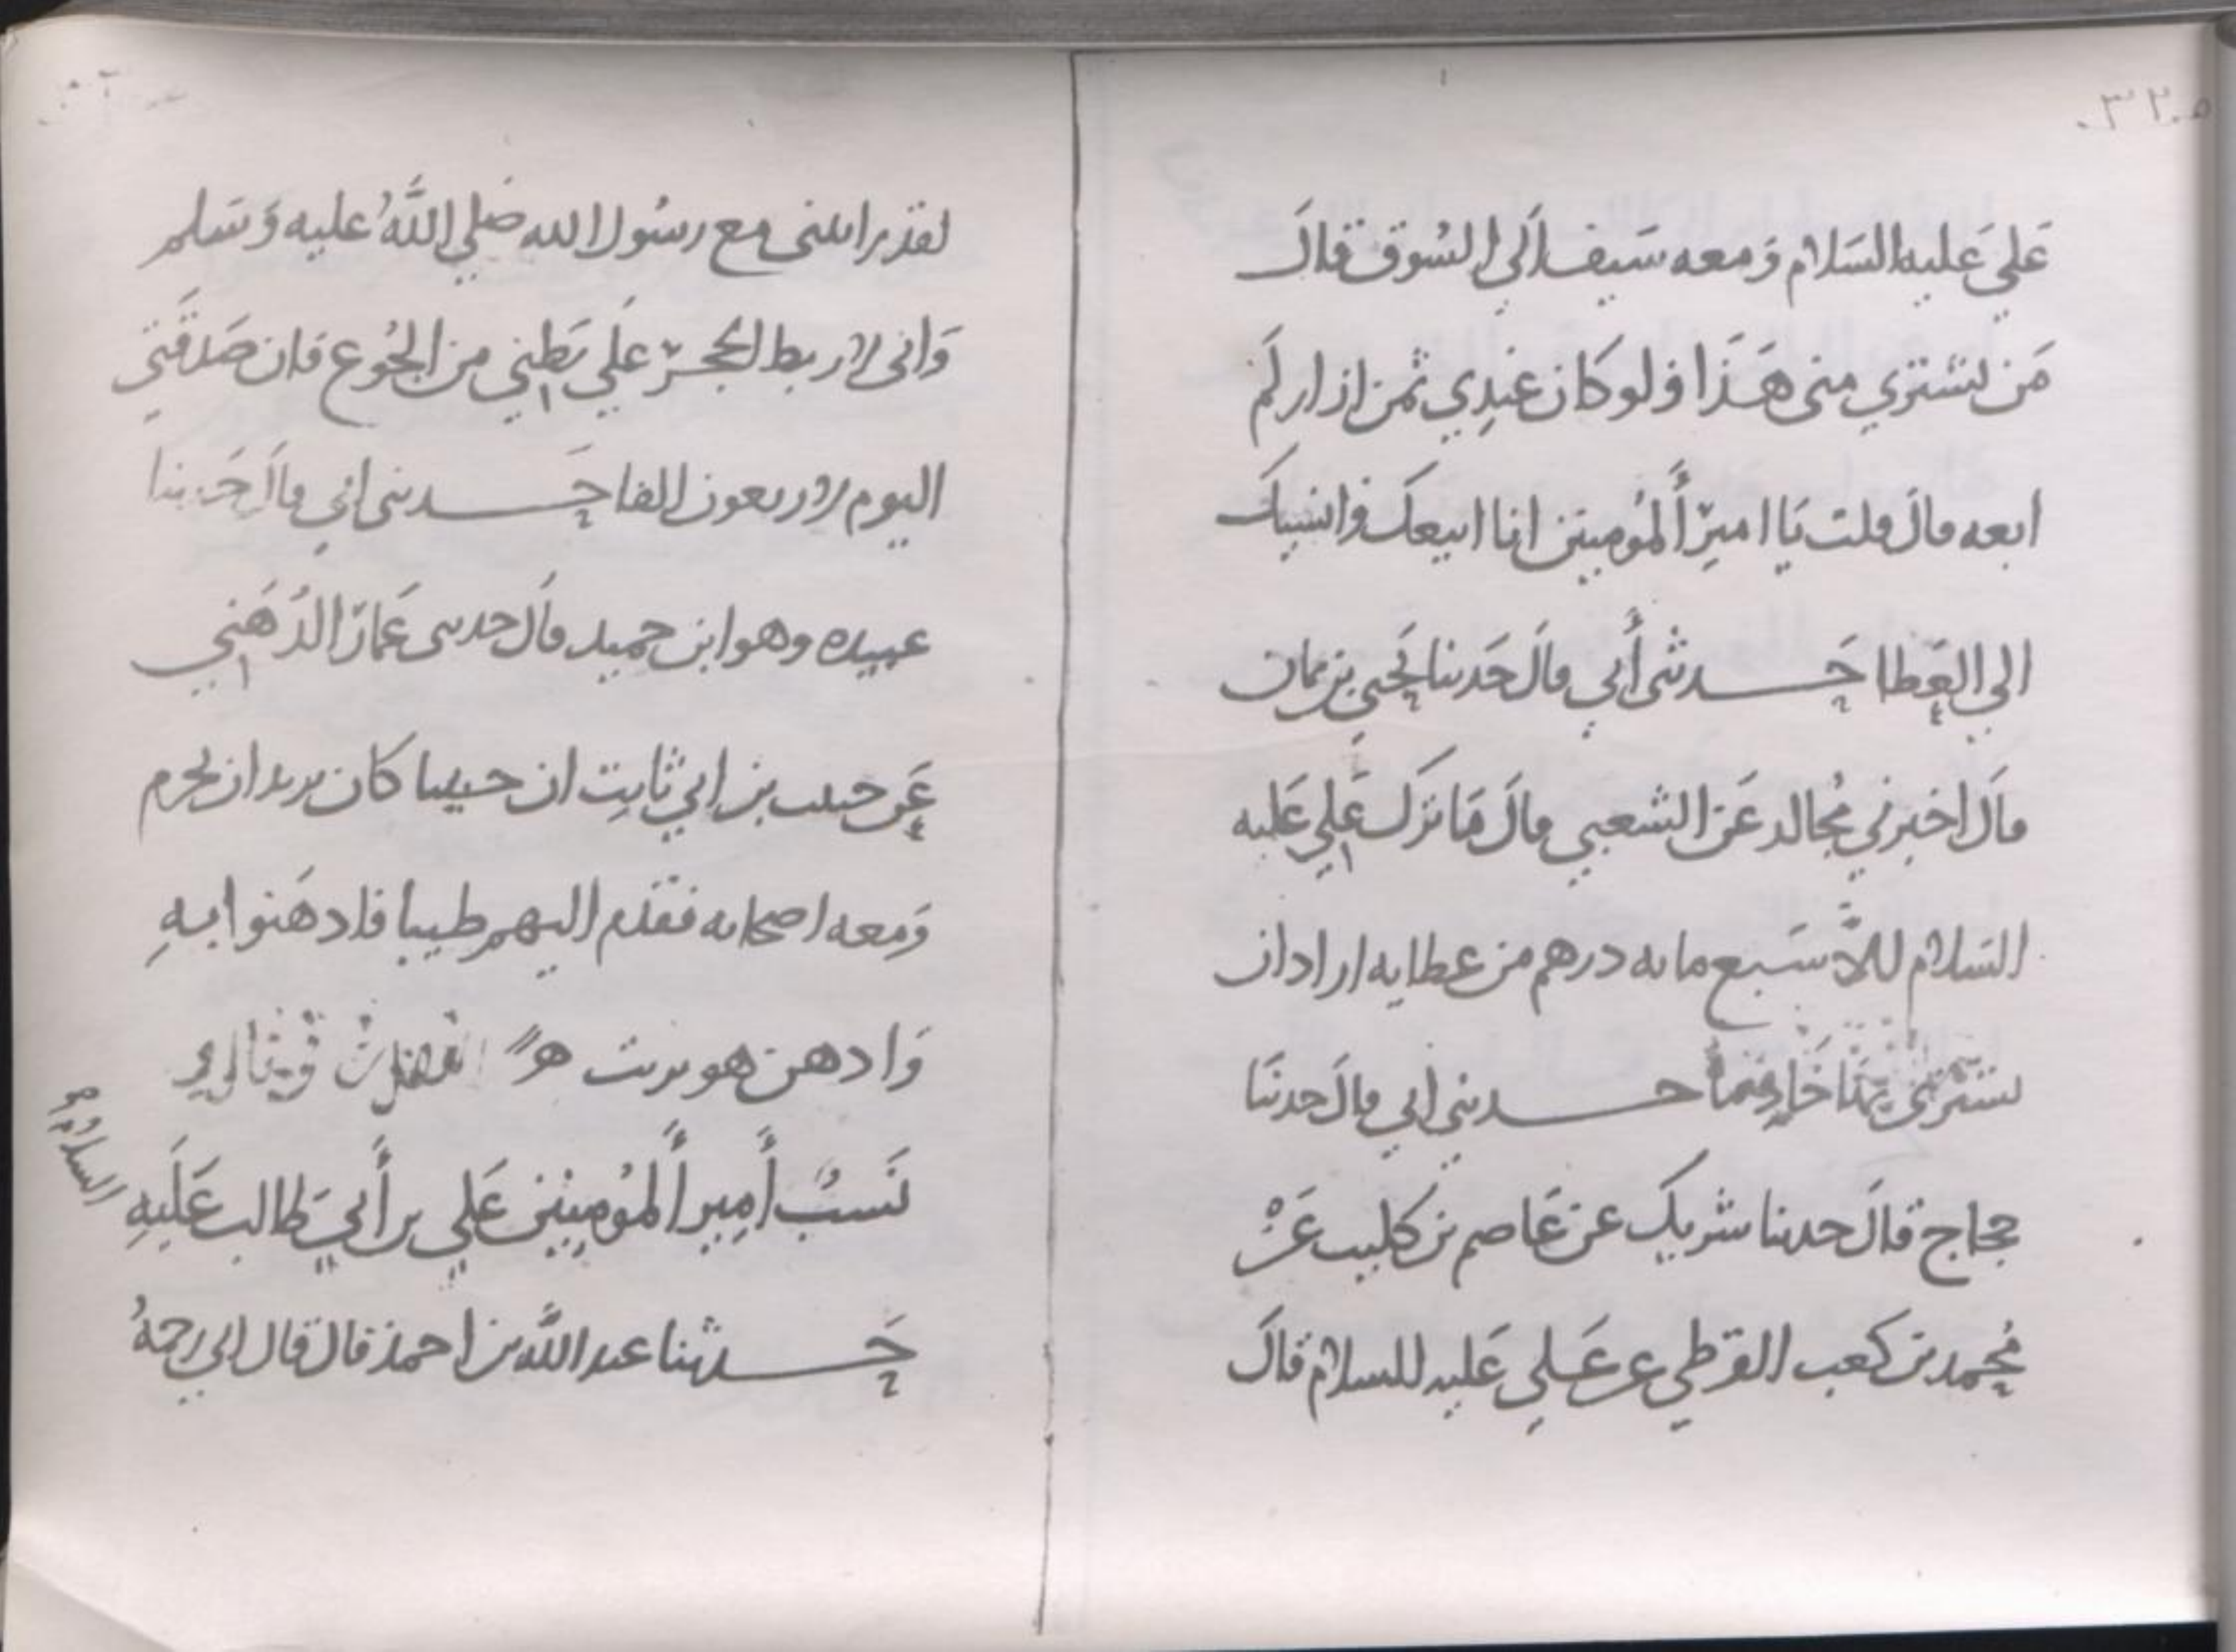 علي عليه السلام ومعه سيف الي السوق قال
من يشتري مني هذا فلو كان عندي ثمن ازار لم
ابعه قال قلت يا امير المؤمنين انا ابيعك وانسيك
الي العطا حدثني أبي قال حدثنا يحيي بن يمان
قال اخبرني مجالد عن الشعبي قال ما ترك علي عليه
السلام الا سبع مايه درهم من عطايه اراد ان
يشتري بها خادما حدثني ابي قال حدثنا
حجاج قال حدثنا شريك عن عاصم بن كليب عن
محمد بن كعب القرظي عن علي عليه السلام قال
لقد رايتني مع رسول الله صلي الله عليه وسلم
واني لاربط الحجر علي بطني من الجوع فان صدقتي
اليوم لاربعون الفا حدثني ابي قال حدثنا
عبيده وهو ابن حميد قال حدثني عمار الدهني
عن حبيب بن ابي ثابت ان حبيبا كان يريد ان يحرم
ومعه اصحابه فقدم اليهم طيبا فادهنوا به
وادهن هو بزيت
نسب أمير المؤمنين علي بن أبي طالب عليه
السلام
حدثنا عبد الله بن احمد قال قال ابي رحمه